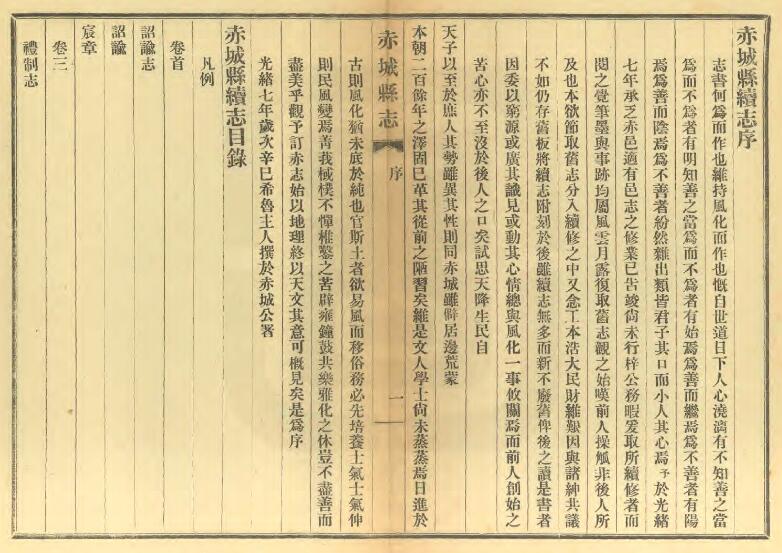 赤城縣續志序
志書何爲而作也維持風化而作也慨自世道日下人心澆漓有不知善之當
爲而不爲者有明知善之當爲而不爲者有始焉爲善而繼焉爲不善者有陽
焉爲善而陰焉爲不善者紛然雜出類皆君子其口而小人其心焉予於光緒
七年承乏赤邑適有邑志之修業已告竣尙未行梓公務暇爰取所續修者而
閱之覺筆墨與事跡均屬風雲月露復取舊志觀之始嘆前人操觚非後人所
及也本欲節取舊志分入續修之中又念工本浩大民財維艱因與諸紳共議
不如仍存舊板將續志附刻於後雖續志無多而新不廢舊俾後之讀是書者
因委以窮源或廣其識見或動其心情總與風化一事攸關焉而前人創始之
苦心亦不至沒於後人之口矣試思天降生民自
天子以至於庶人其勢雖異其性則同赤城雖僻居邊荒蒙
本朝二百餘年之澤固已革其從前之陋習矣維是文人學士尙未蒸蒸焉日進於
赤城縣志
序
一
古則風化猶未底於純也官斯土者欲易風而移俗務必先培養士氣士氣伸
則民風變焉菁莪棫樸不憚椎鑿之苦辟雍鐘鼓共樂雅化之休豈不盡善而
盡美乎觀予訂赤志始以地理終以天文其意可概見矣是爲序
光緒七年歲次辛巳希魯主人撰於赤城公署
凡例
赤城縣續志目錄
卷首
詔諭志
詔諭
宸章
卷三
禮制志